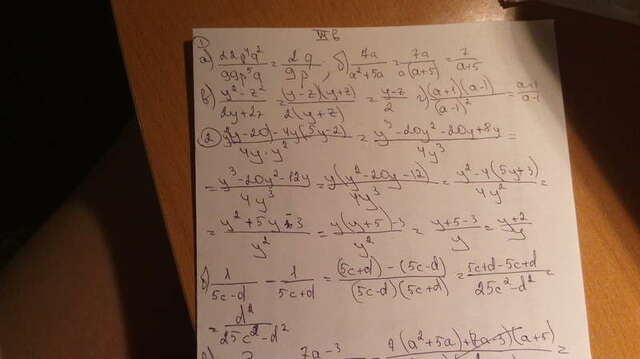 VI в
① а) 22p⁴q² / 99p⁵q = 2q / 9p, б) 7a / a²+5a = 7a / a(a+5) = 7 / a+5
в) y²-z² / 2y+2z = (y-z)(y+z) / 2(y+z) = y-z / 2 г) (a+1)(a-1) / (a-1)² = a+1 / a-1
② -20)-4y(5y-2) / 4y·y² = y³-20y²-20y+8y / 4y³ =
= y³-20y²-12y / 4y³ = y(y²-20y-12) / 4y³ = y²-4(5y+3) / 4y² =
= y²+5y-3 / y² = y(y+5)-3 / y² = y+5-3 / y = y+2 / y
б) 1 / 5c-d - 1 / 5c+d = (5c+d)-(5c-d) / (5c-d)(5c+d) = 5c+d-5c+d / 25c²-d² =
= d² / 25c²-d²
в) 7a-3 (a²+5a)+(7a-3)(a+5) =